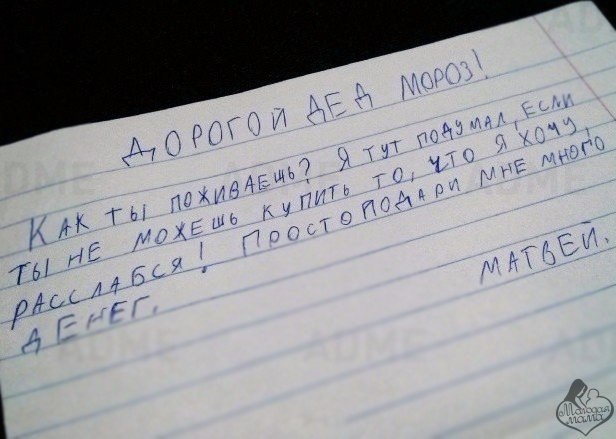 ДОРОГОЙ ДЕД МОРОЗ!
КАК ТЫ ПОЖИВАЕШЬ? Я ТУТ ПОДУМАЛ, ЕСЛИ
ТЫ НЕ МОЖЕШЬ КУПИТЬ ТО, ЧТО Я ХОЧУ,
РАССЛАБСЯ! ПРОСТО ПОДАРИ МНЕ МНОГО
ДЕНЕГ.
МАТВЕЙ.
ADME
ADME
ADME
Молодая
мама